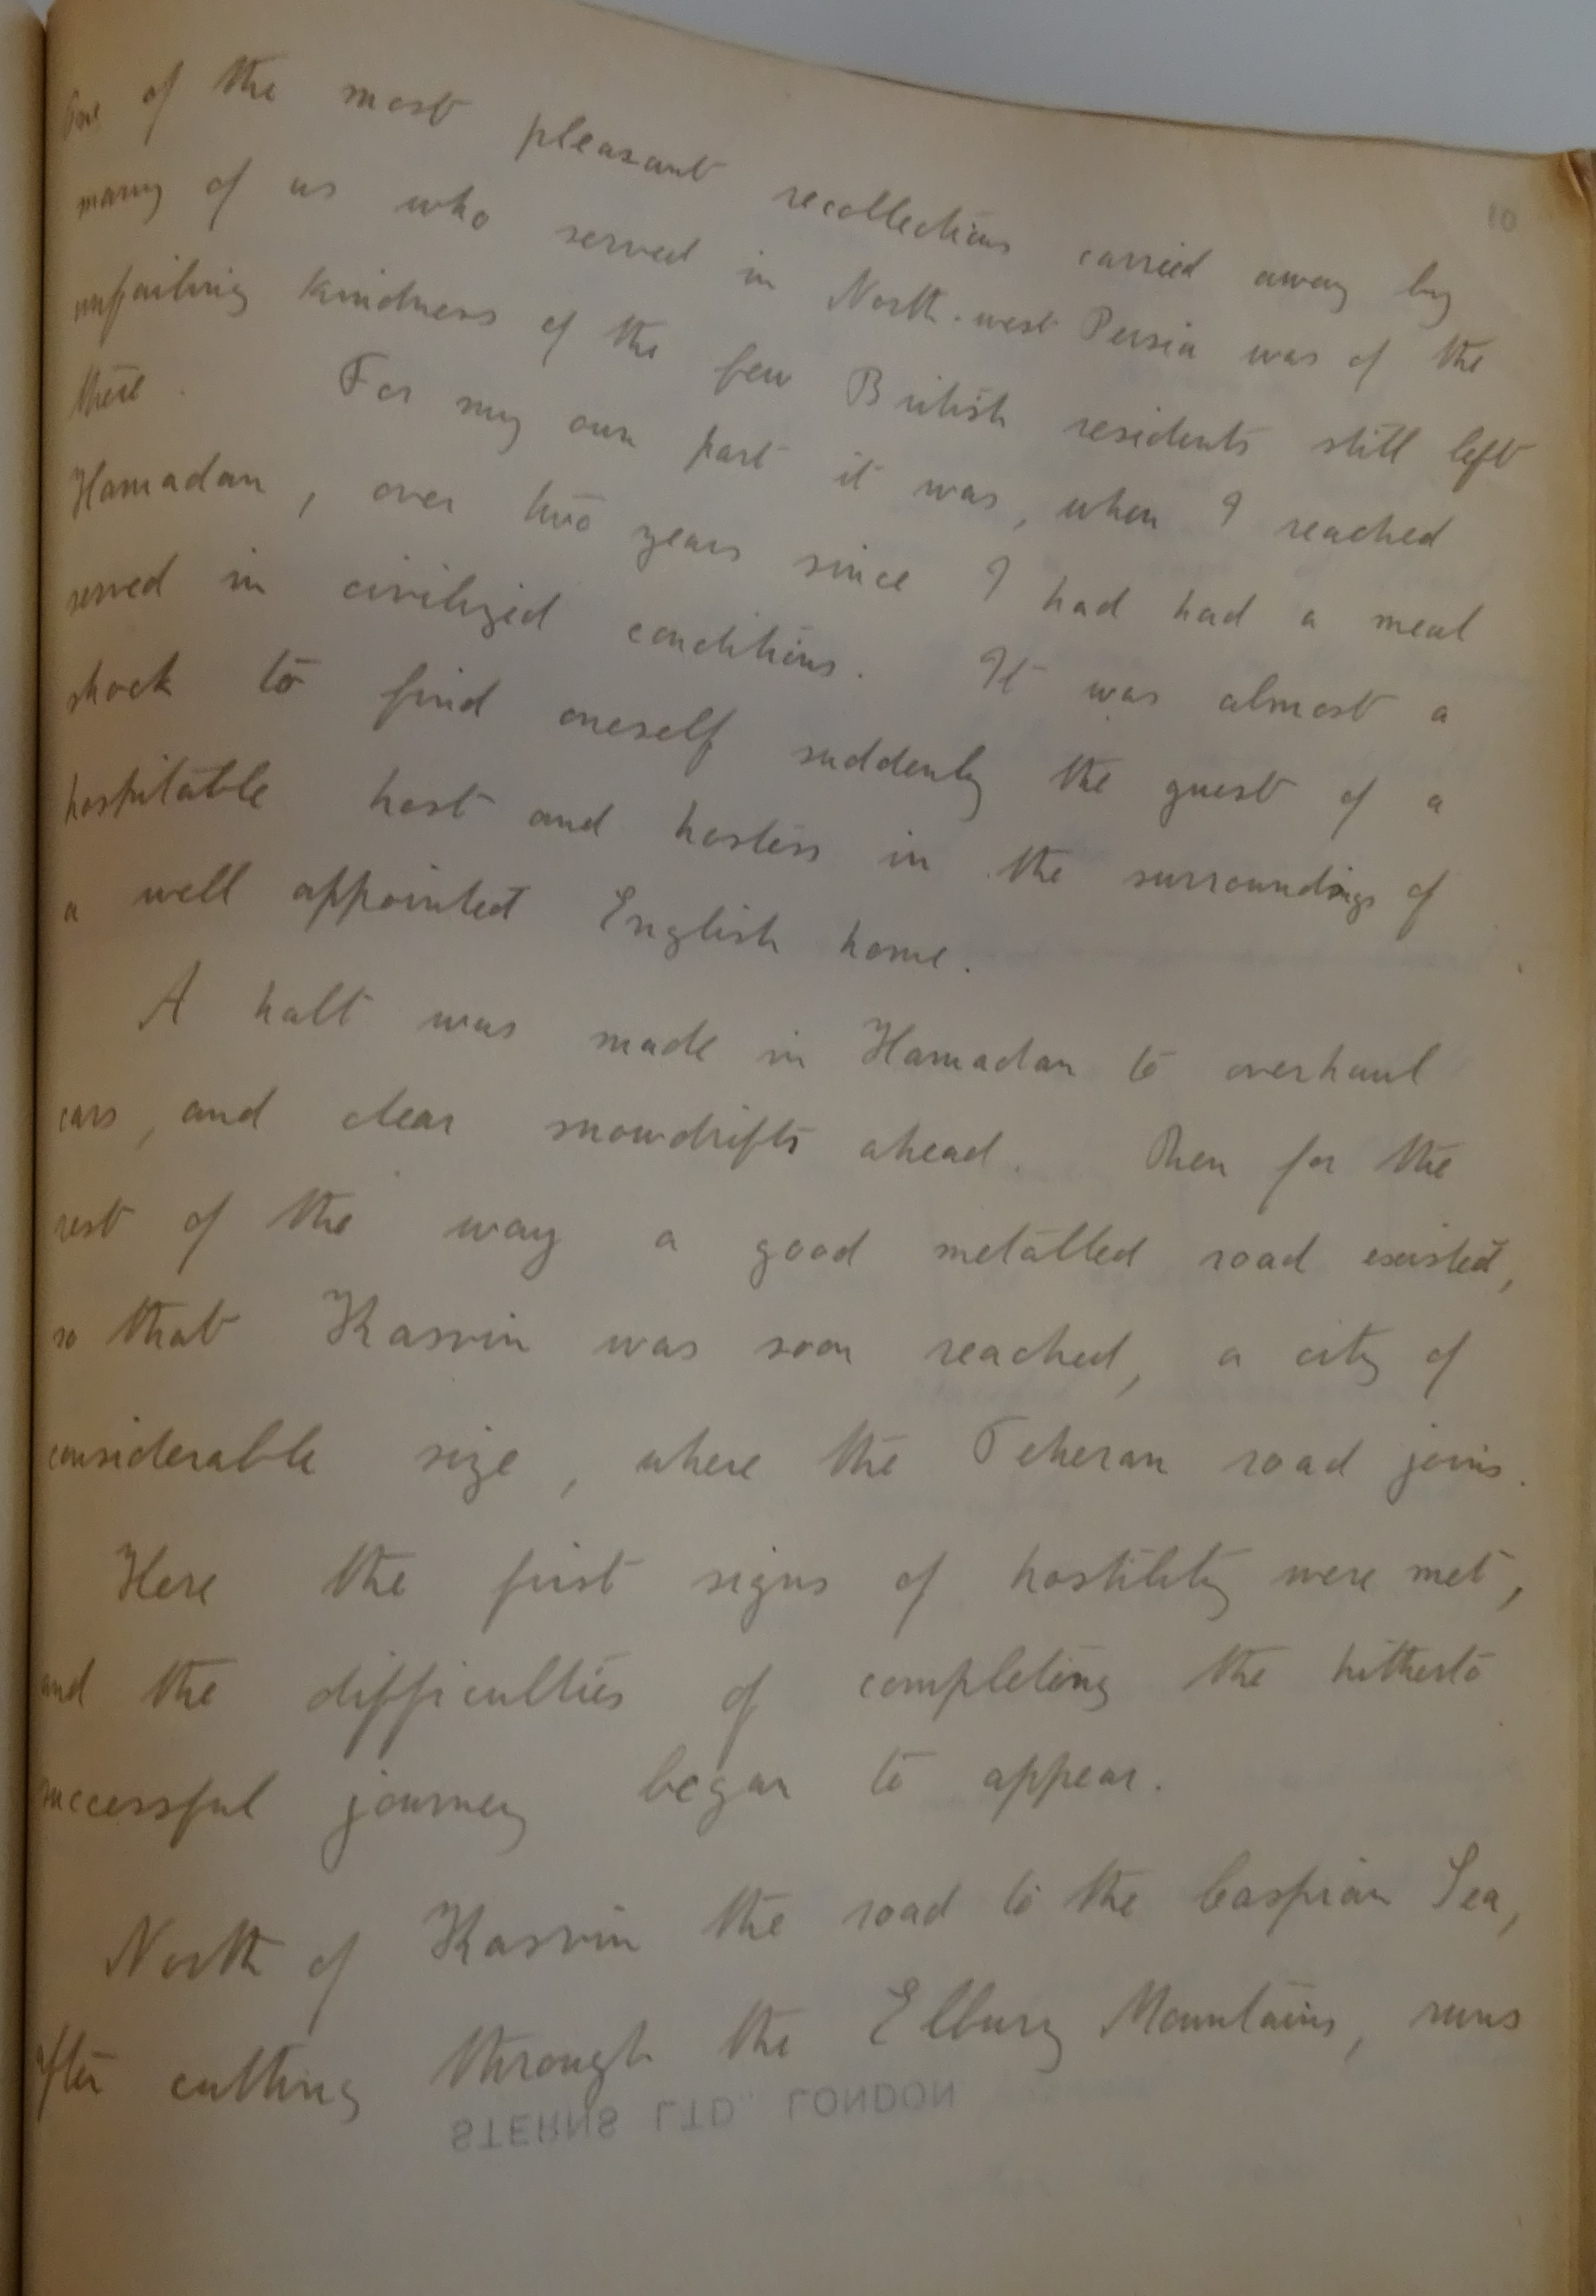 10
One of the most pleasant recollections carried away by
many of us who served in North-west Persia was of the
unfailing kindness of the few British residents still left
there. For my own part it was, when I reached
Hamadan, over two years since I had had a meal
served in civilized conditions. It was almost a
shock to find oneself suddenly the guest of a
hospitable host and hostess in the surroundings of
a well appointed English home.
A halt was made in Hamadan to overhaul
cars, and clear snowdrifts ahead. Then for the
rest of the way a good metalled road existed,
so that Kasvin was soon reached, a city of
considerable size, where the Teheran road joins.
Here the first signs of hostility were met,
and the difficulties of completing the hitherto
successful journey began to appear.
North of Kasvin the road to the Caspian Sea,
after cutting through the Elburz Mountains, runs
STERNS LTD. LONDON